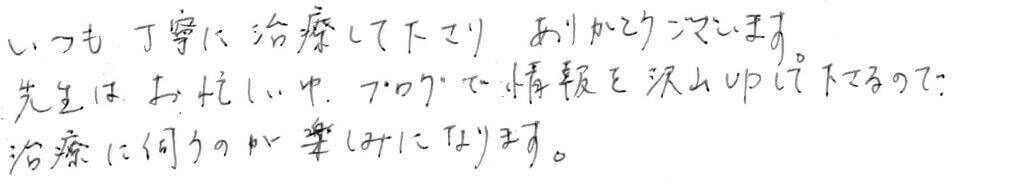 いつも丁寧に治療して下さり ありがとうございます。
先生はお忙しい中、ブログで情報を沢山UPして下さるので
治療に伺うのが楽しみになります。